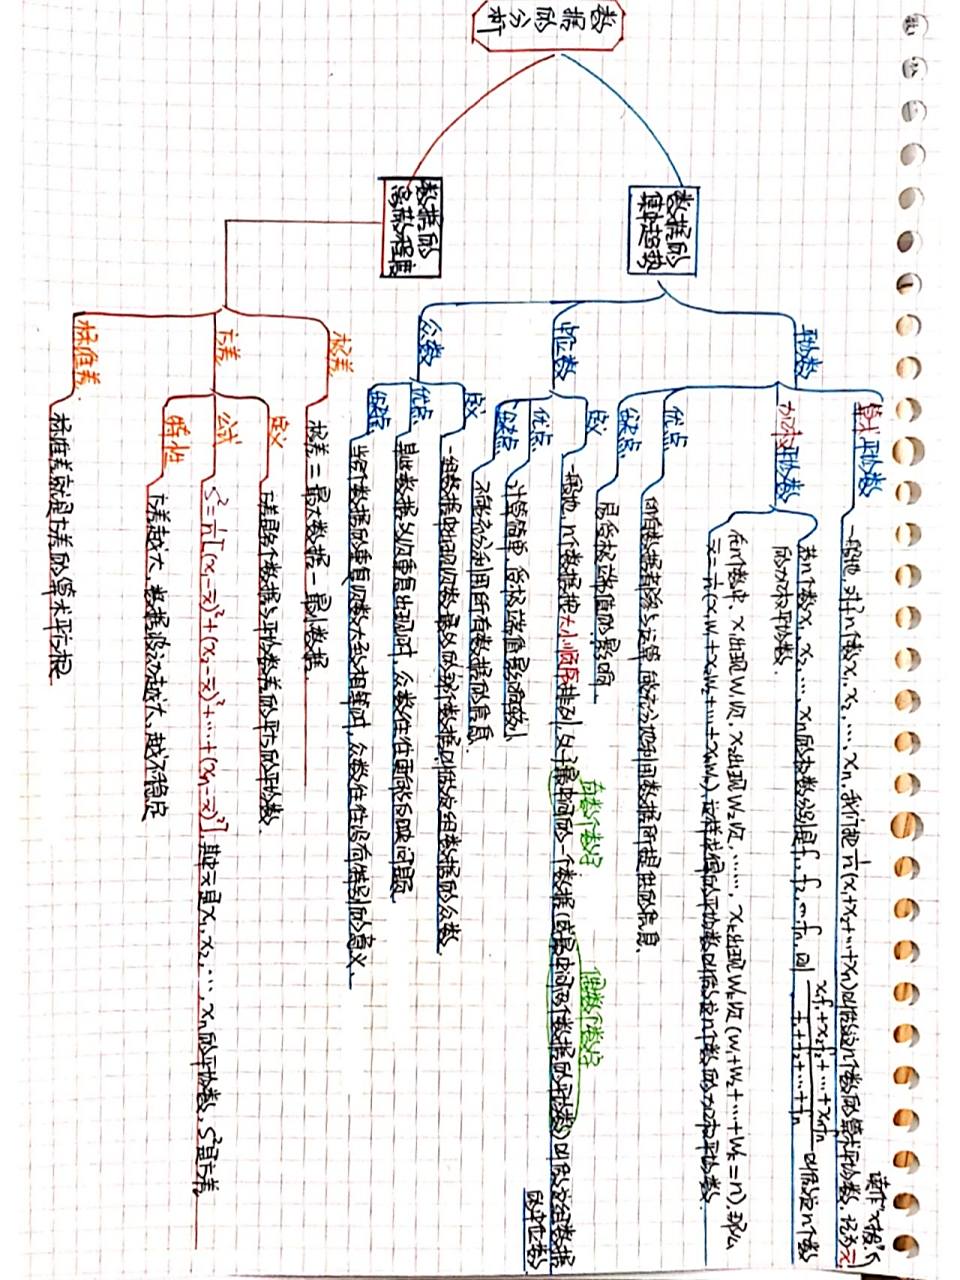 数据的分析
数据的
集中趋势
平均数
算术平均数
一般地,对于n个数x₁,x₂,…,xₙ,我们把1/n(x₁+x₂+…+xₙ)叫做这n个数的算术平均数,记为x̄
读作"x拔"
加权平均数
若n个数x₁,x₂,…,xₙ的权数分别是f₁,f₂,…fₙ,则 (x₁f₁+x₂f₂+…+xₙfₙ)/(f₁+f₂+…+fₙ) 叫做这n个数
的加权平均数
在n个数中,x₁出现W₁次,x₂出现W₂次,……,xₖ出现Wₖ次(W₁+W₂+…+Wₖ=n),那么
x̄=1/n(x₁W₁+x₂W₂+…+xₖWₖ)这样求得的平均数叫做这n个数的加权平均数
优点
所有数据都参与运算,能充分地利用数据所提供的信息
缺点
易受极端值的影响
中位数
定义
奇数个数字
偶数个数字
一般地,n个数据按大小顺序排列,处于最中间的一个数据(或最中间两个数据的平均数)叫做这组数据
的中位数
优点
计算简单,受极端值影响较小
缺点
不能充分利用所有数据的信息
众数
定义
一组数据中出现次数最多的那个数据叫做这组数据的众数
优点
某些数据多次重复出现时,众数往往更能反映问题
缺点
当各个数据的重复次数大致相等时,众数往往没有特别的意义
数据的
离散程度
极差
极差=最大数据-最小数据
方差
定义
方差是各个数据与平均数差的平方的平均数.
公式
S²=1/n[(x₁-x̄)²+(x₂-x̄)²+…+(xₙ-x̄)²],其中x̄是x₁,x₂,…,xₙ的平均数,S²是方差
特性
方差越大,数据波动越大,越不稳定
标准差
标准差就是方差的算术平方根